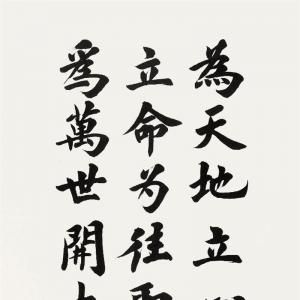 為天地立
立命为往聖
爲萬世開